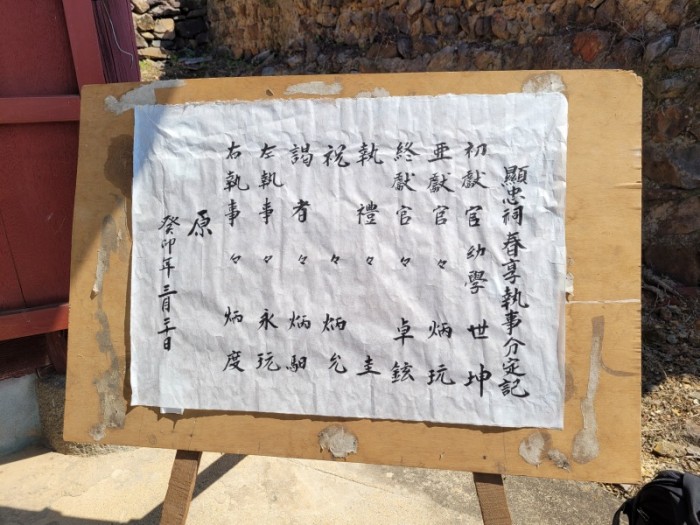 顯忠祠春享執事分定記
初獻官幼學 世坤
亞獻官 々 炳玩
終獻官 々 卓鉉
執禮 々 圭
祝 々 炳允
謁者 々 炳馹
左執事 々 永玩
右執事 々 炳度
原
癸卯年三月二十日